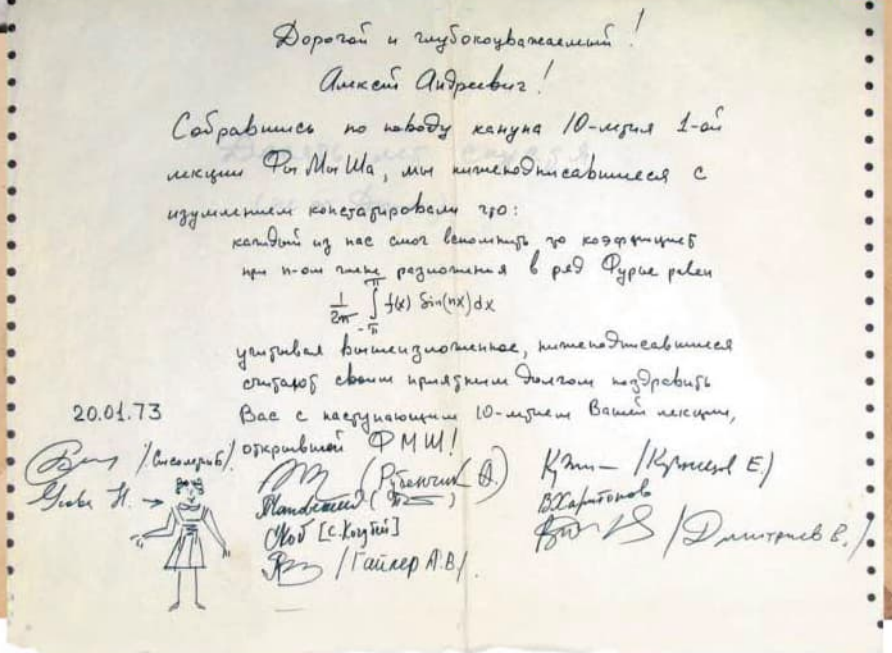 Дорогой и глубокоуважаемый!
Алексей Андреевич!
Собравшись по поводу кануна 10-летия 1-ой
лекции ФыМыШа, мы нижеподписавшиеся с
изумлением констатировали что:
каждый из нас смог вспомнить что коэффициент
при n-ом члене разложения в ряд Фурье равен
1/2π ∫_{-π}^{π} f(x) Sin(nx)dx
учитывая вышеизложенное, нижеподписавшиеся
считают своим приятным долгом поздравить
20.01.73 Вас с наступающим 10-летием Вашей лекции,
открывшей ФМШ!
(Рубенчик А.)
/Кузнецов Е.)
В.Харитонов
[С. Коубий]
/Дмитриев В./
/Гайнер А.В/